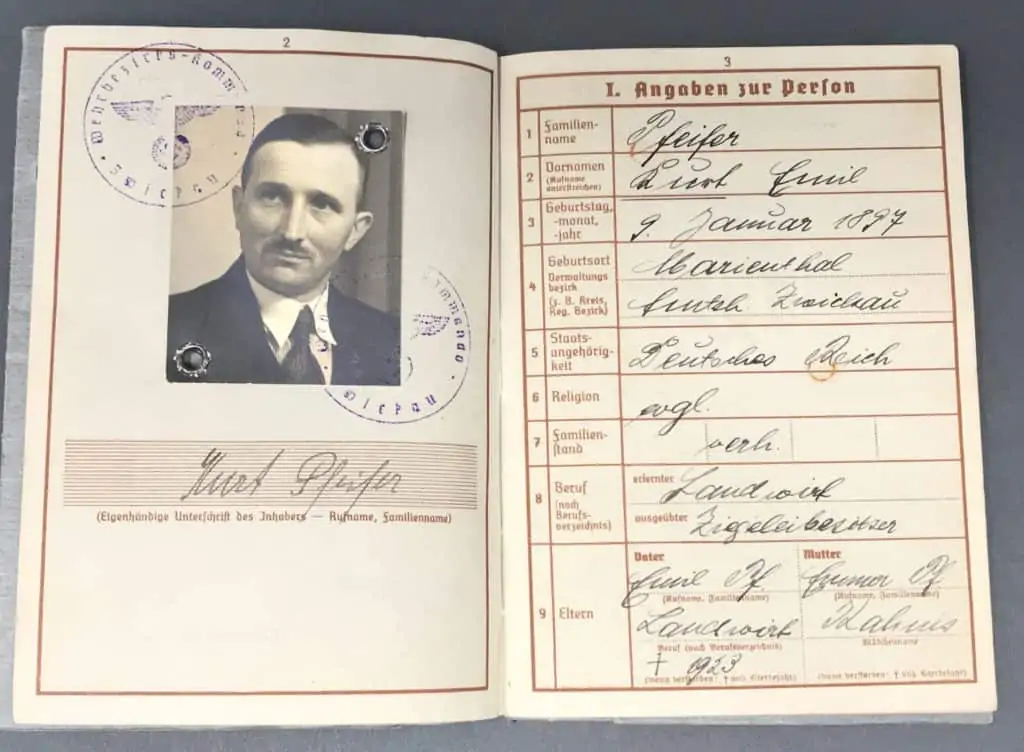 2
Wehrbezirks-Kommando
Zwickau
mmando
Zwickau
Kurt Pfeifer
(Eigenhändige Unterschrift des Inhabers — Rufname, Familienname)
3
I. Angaben zur Person
1 Familien-
name
Pfeifer
2 Vornamen
(Rufname
unterstreichen)
Kurt Emil
3 Geburtstag,
-monat,
-jahr
9. Januar 1897
4 Geburtsort
Verwaltungs
bezirk
(z. B. Kreis,
Reg. Bezirk)
Marienthal
Amtsh. Zwickau
5 Staats-
angehörig-
keit
Deutsches Reich
6 Religion
evgl.
7 Familien-
stand
verh.
8 Beruf
(nach
Berufs-
verzeichnis)
erlernter
Landwirt
ausgeübter
Zigeleibesitzer
9 Eltern
Vater
Emil Pf.
(Rufname, Familienname)
Landwirt
Beruf (nach Berufsverzeichnis)
† 1923
(wenn verstorben: † und Sterbejahr)
Mutter
Emma Pf.
(Rufname, Familienname)
Mädchenname
(wenn verstorben: † und Sterbejahr)